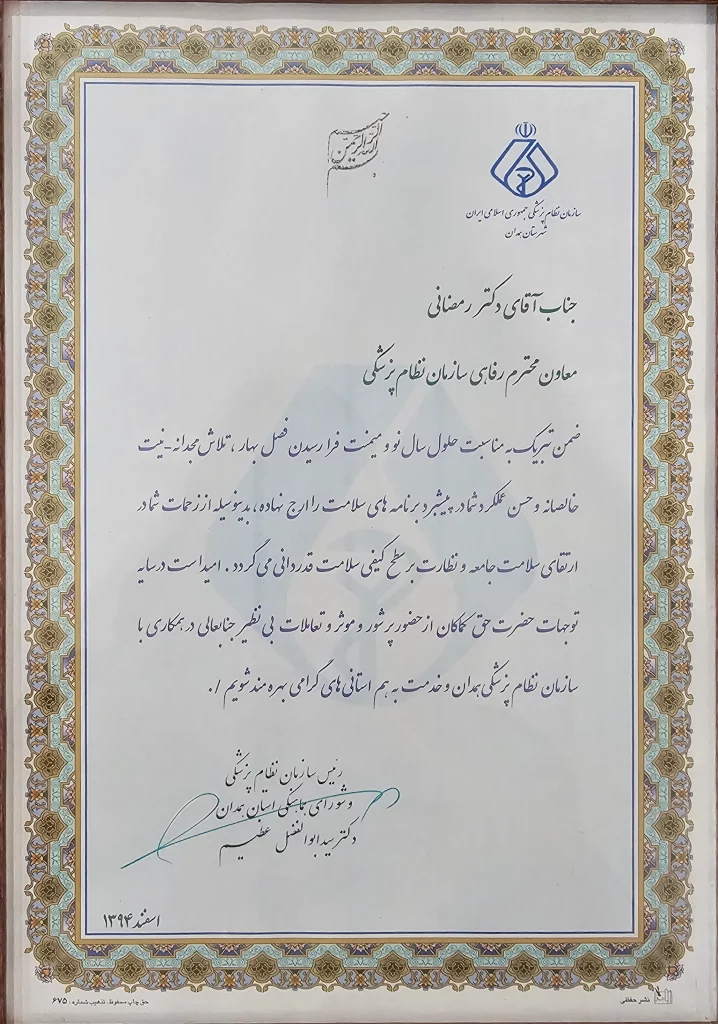 بسم الله الرحمن الرحیم
سازمان نظام پزشکی جمهوری اسلامی ایران
شهرستان همدان
جناب آقای دکتر رمضانی
معاون محترم رفاهی سازمان نظام پزشکی
ضمن تبریک به مناسبت حلول سال نو و میمنت فرا رسیدن فصل بهار ، تلاش مجدانه - نیت
خالصانه و حسن عملکرد شما در پیشبرد برنامه های سلامت را ارج نهاده ، بدینوسیله از زحمات شما در
ارتقای سلامت جامعه و نظارت بر سطح کیفی سلامت قدردانی می گردد . امید است در سایه
توجهات حضرت حق کماکان از حضور پرشور و موثر و تعاملات بی نظیر جنابعالی در همکاری با
سازمان نظام پزشکی همدان و خدمت به هم استانی های گرامی بهره مند شویم ./
رئیس سازمان نظام پزشکی
و شورای هماهنگی استان همدان
دکتر سید ابوالفضل عظیم
اسفند ۱۳۹۴
نشر حفظی
حق چاپ محفوظ. تذهیب شماره ۶۷۵